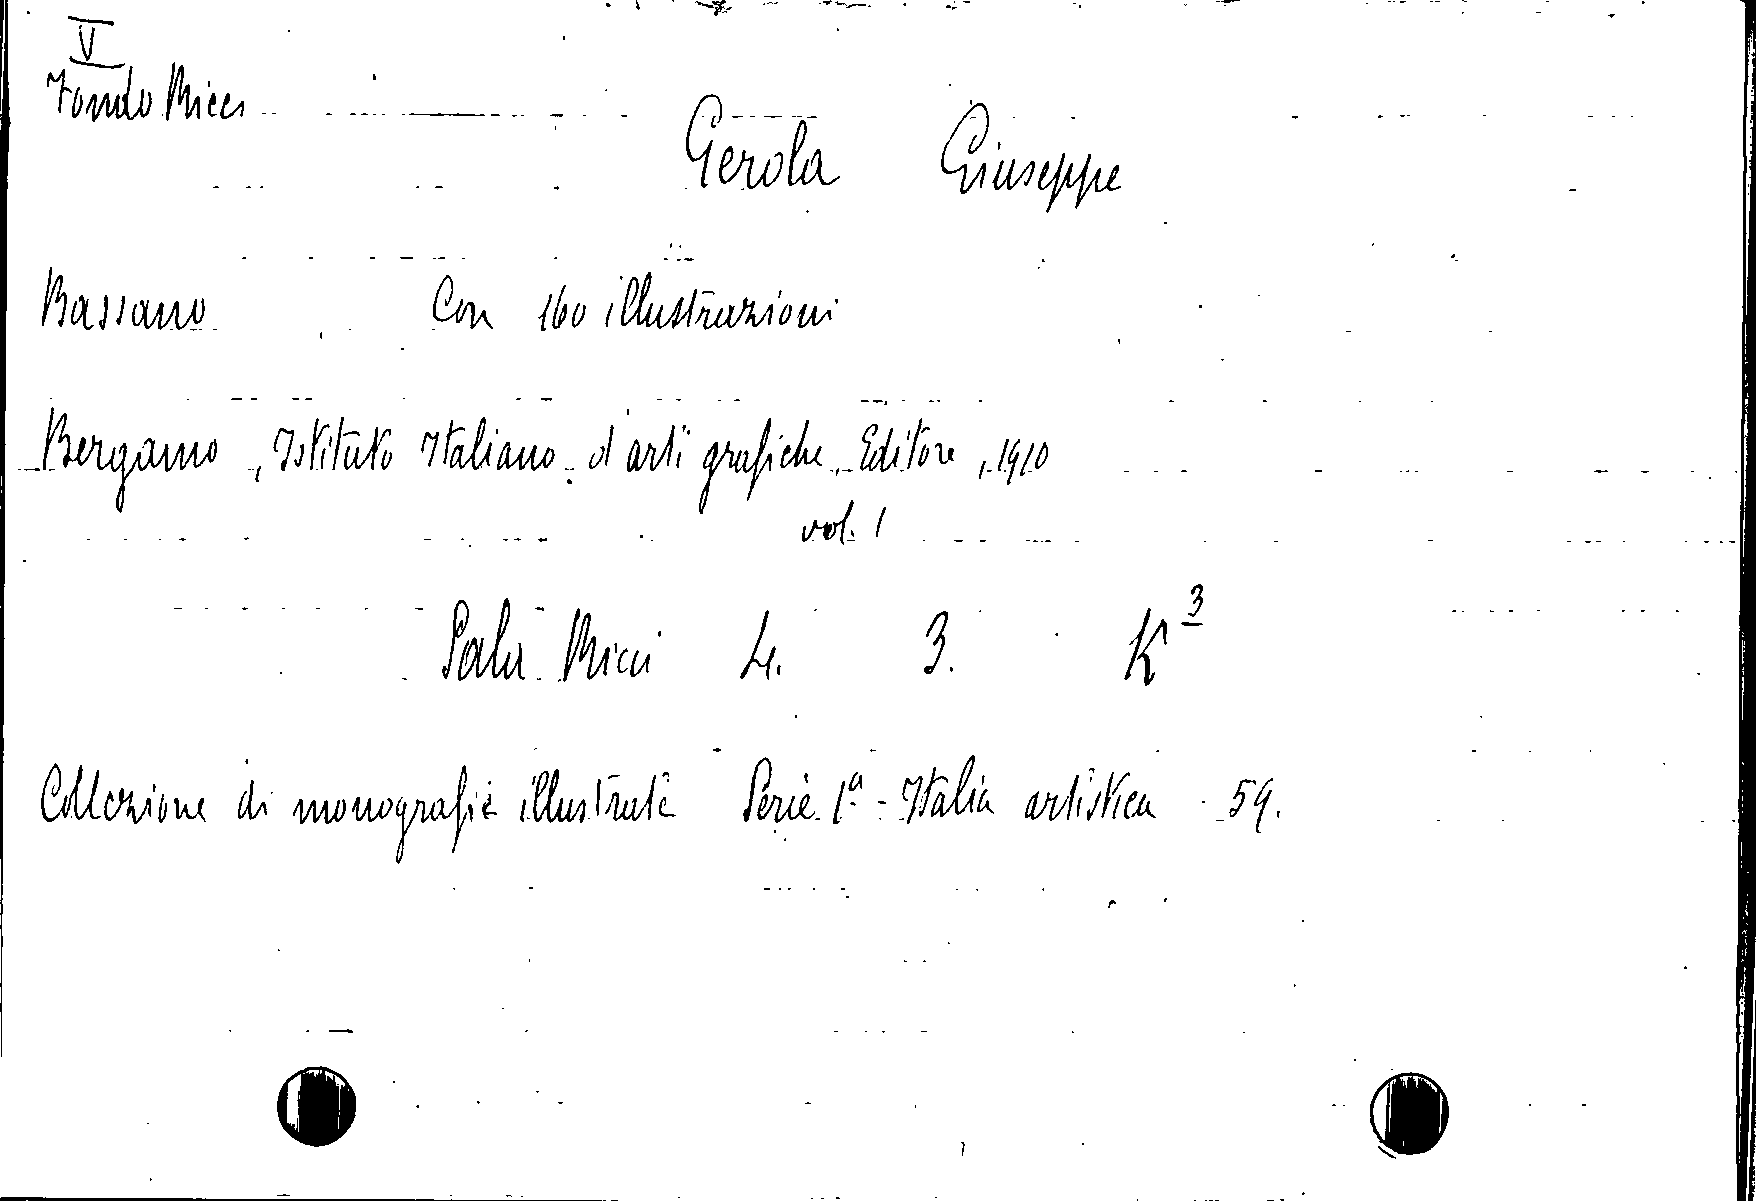 V
Fondo Ricci
Gerola Giuseppe
Bassano Con 160 illustrazioni
Bergamo, Istituto Italiano d'arti grafiche, Editore, 1910
vol. 1
Sala Ricci 4. 3. K³
Collezione di monografie illustrate Serie 1ª - Italia artistica - 59.